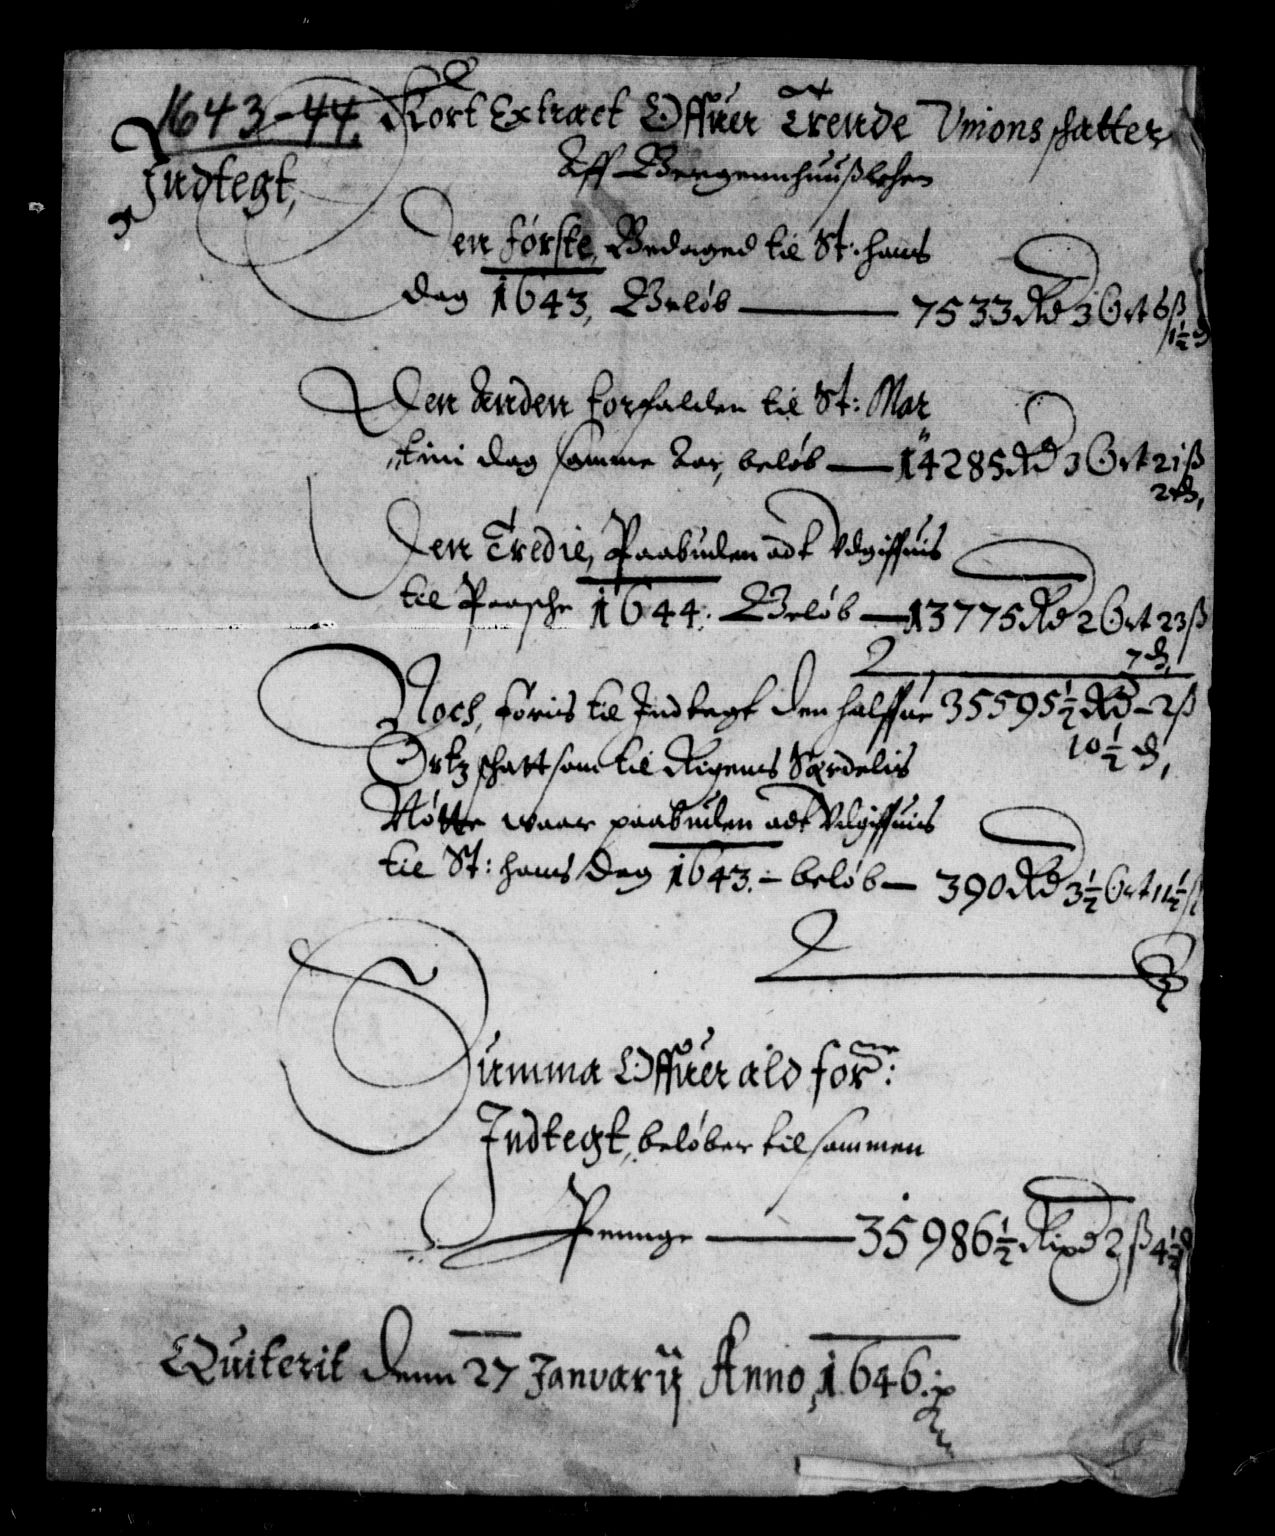 1643-44.
Kort Extract Offuer Trende Unions skatter
Aff Bergennhuußlehen
Indtegt,
Den første, Bedaged til St: hans
dag 1643, Beløb — 7533 Rd 3 Ort 6 ß
1½ d
Den Anden forfalden til St: Mar
tini dag samme Aar, beløb — 14285 Rd 3 Ort 21 ß
2 d,
Den Tredie, Paabuden adt Udgiffuis
til Paasche 1644. Beløb — 13775 Rd 2 Ort 23 ß
7 d,
35595½ Rd - 2 ß
10½ d,
Noch, føris til Indtegt den halffue
Ortz skatt som til Rigens Særdelis
Nøtte waar paabuden adt Udgiffuis
til St: hans dag 1643. - beløb — 390 Rd 3½ Ort 11½ ß
Summa Offuer ald for:
Indtegt, beløber tilsammen
Penninge — 35986½ Rixd 2 ß 4½ d
Quiterit denn 27 Januarij Anno 1646.